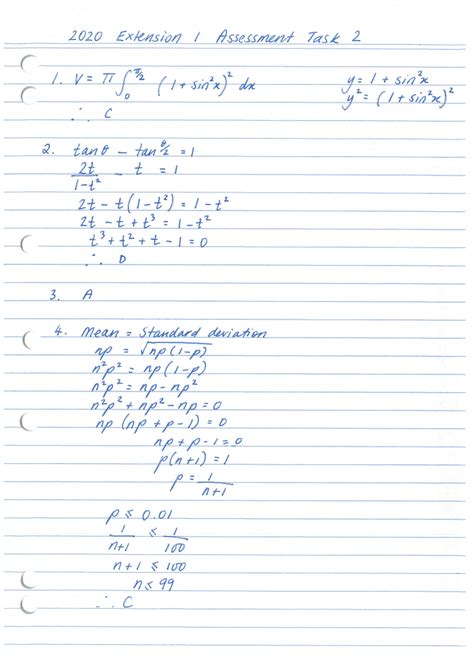 2020 Extension 1 Assessment Task 2
1. V = π ∫₀^π/2 (1 + sin²x)² dx
y = 1 + sin²x
y² = (1 + sin²x)²
∴ C
2. tanθ - tan θ/2 = 1
2t/1-t² - t = 1
2t - t(1-t²) = 1-t²
2t - t + t³ = 1-t²
t³ + t² + t - 1 = 0
∴ D
3. A
4. Mean = Standard deviation
np = √np(1-p)
n²p² = np(1-p)
n²p² = np - np²
n²p² + np² - np = 0
np(np + p - 1) = 0
np + p - 1 = 0
p(n+1) = 1
p = 1/n+1
p ≤ 0.01
1/n+1 ≤ 1/100
n+1 ≤ 100
n ≤ 99
∴ C